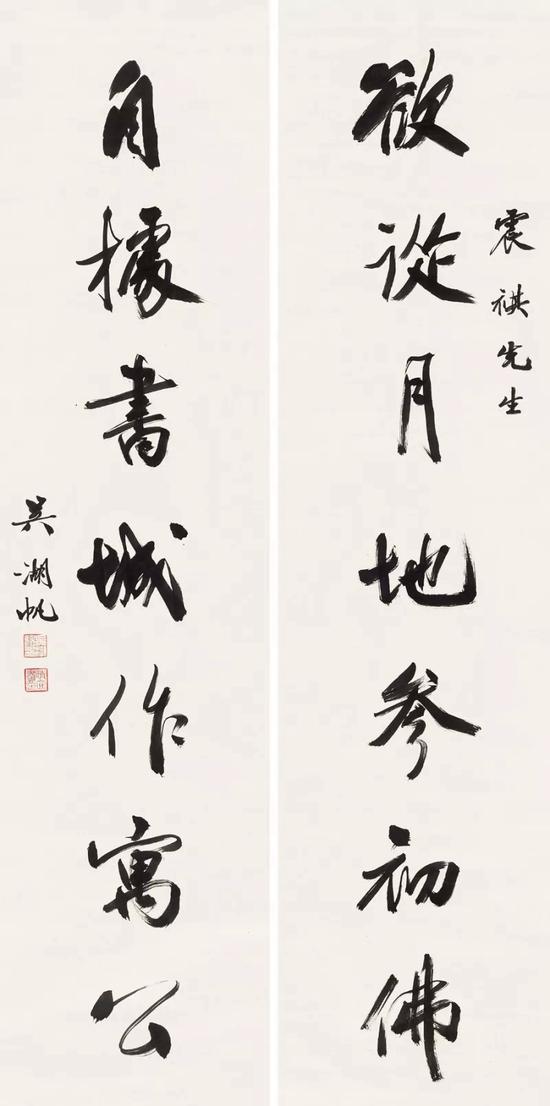 欲從月地參初佛
震祺先生
自據書城作寓公
吳湖帆